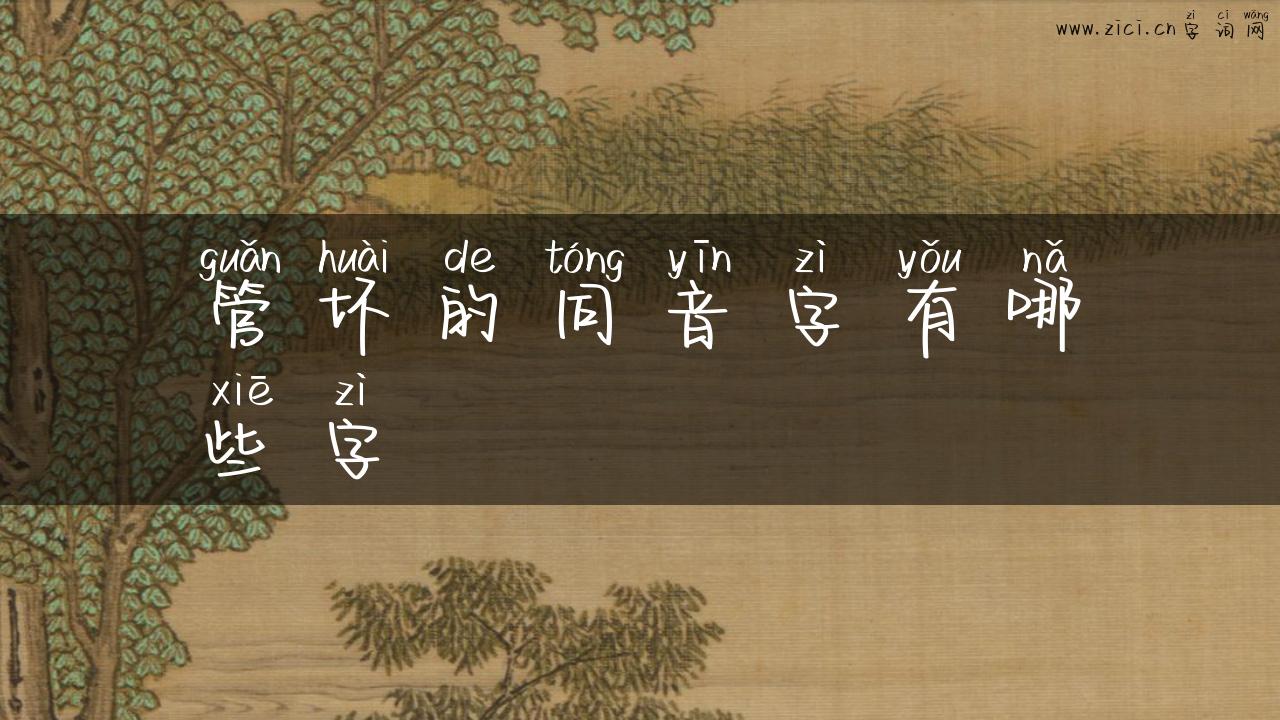 zì cí wǎng
www.zici.cn 字词网
guǎn huài de tóng yīn zì yǒu nǎ
管坏的同音字有哪
xiē zì
些字